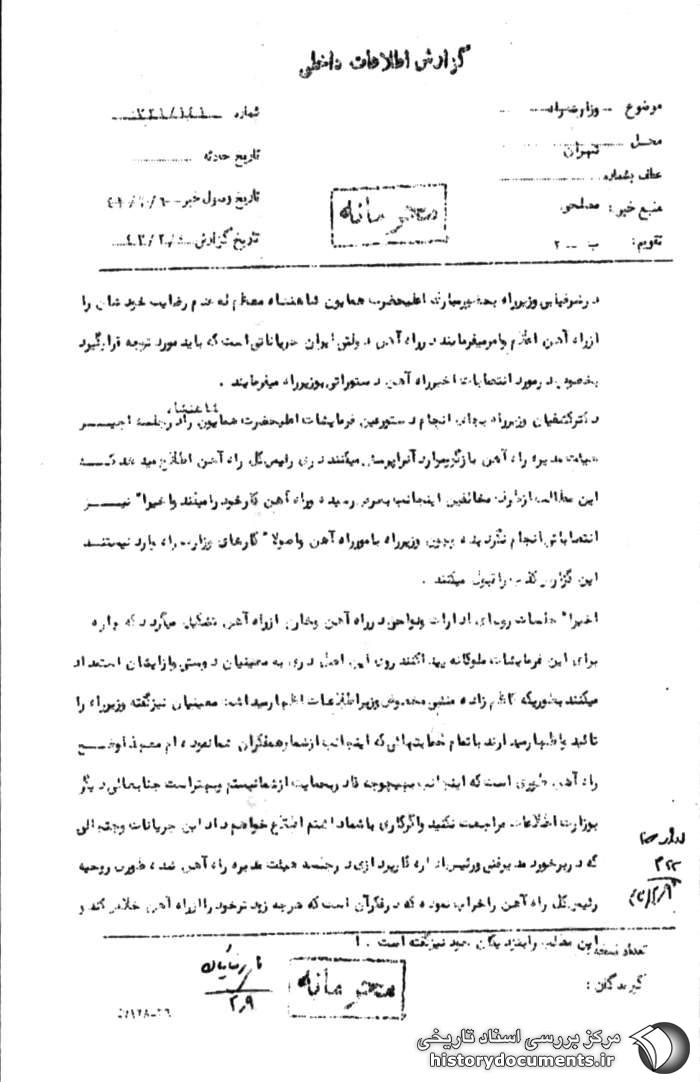 گزارش اطلاعات داخلی
موضوع وزارت راه
شماره ۳۲۱/۱۴۱
محل تهران
تاریخ حادثه
عطف بشماره
تاریخ وصول خبر
منبع خبر: مصلحی
محرمانه
تاریخ گزارش
تقویم: ب - ۲
در شرفیابی وزیرراه بحضور مبارک اعلیحضرت همایون شاهنشاه معظم له عدم رضایت خودشان را
از راه آهن اعلام و امر میفرمایند در راه آهن دولتی ایران جریاناتی است که باید مورد توجه قرار گیرد
بخصوص در مورد انتصابات اخیر راه آهن دستوراتی بوزیرراه میفرمایند .
دکتر کشفیان وزیرراه بجای انجام دستور عین فرمایشات اعلیحضرت همایون شاهنشاه را در جلسه اخیر
هیئت مدیره راه آهن بازگو و موارد آنرا پرسش میکنند رئیس کل راه آهن اطلاع میدهد که
این مطالب از طرف مخالفین اینجانب بعرض رسیده و راه آهن کار خود را میکند و اخیرا" نیز
انتصاباتی انجام نگردیده و چون وزیرراه بامور راه آهن و اصولا" کارهای وزارت راه وارد نیستند
این گزارش کذب را قبول میکنند .
اخیرا" جلسات روسای ادارات و نواحی در راه آهن و خارج از راه آهن تشکیل میگردد که چاره
برای این فرمایشات ملوکانه پیدا کنند روی این اصل به معینیان دوستی و از ایشان استمداد
میکنند بطوریکه کاظم زاده منشی مخصوص وزیر اطلاعات اظهار میداشت معینیان نیز گفته وزیرراه را
تائید و اظهار میدارند با تمام حمایتهائی که اینجانب از شما و همفکران شما نموده ام معهذا وضع
راه آهن طوری است که اینجانب بهیچوجه قادر بحمایت از شما نیستم و بهتر است جنابعالی دیگر
بوزارت اطلاعات مراجعت نکنید و اگر کاری با شما داشتم اطلاع خواهم داد این جریانات و جنجالی
که در برخورد مدیر فنی و رئیس اداره کارپردازی در جلسه هیئت مدیره راه آهن شده، طوری روحیه
رئیس کل راه آهن را خراب نموده که در فکر آن است که هرچه زودتر خود را از راه آهن خلاص کند و
این مطالب را بنزدیکان خود نیز گفته است .
تعداد نسخه :
گیرندگان :
محرمانه
۲٫۹
مرکز بررسی اسناد تاریخی
historydocuments.ir